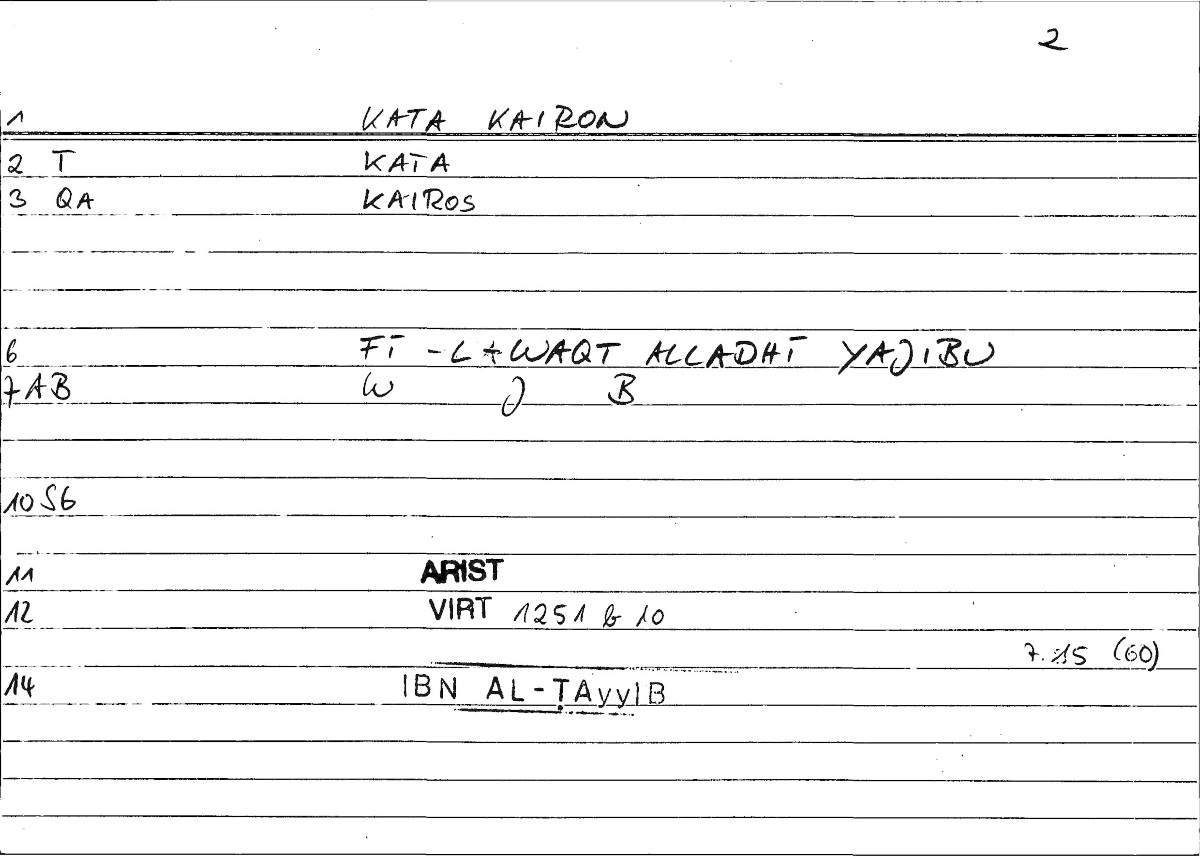 2
1 KATA KAIRON
2 T KATA
3 QA KAIROS
6 FĪ -L-WAQT ALLADHĪ YAJIBU
7 AB W J B
10 S6
11 ARIST
12 VIRT 1251 b 10
7.15 (60)
14 IBN AL-ṬAyyIB